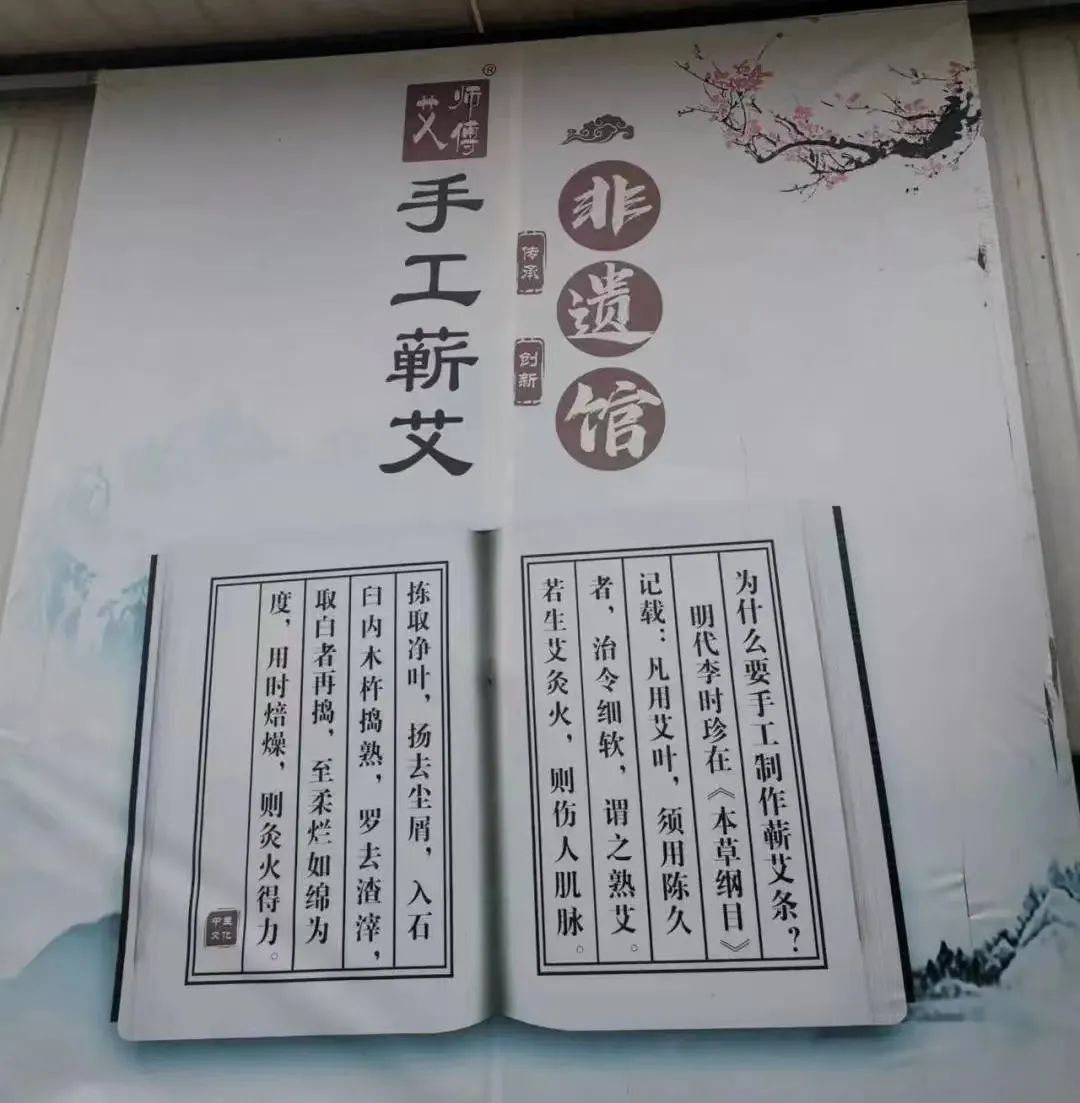 非遗馆
传承
创新
艾师傅®
手工蕲艾
为什么要手工制作蕲艾条？
明代李时珍在《本草纲目》
记载：凡用艾叶，须用陈久
者，治令细软，谓之熟艾。
若生艾灸火，则伤人肌脉。
拣取净叶，扬去尘屑，入石
臼内木杵捣熟，罗去渣滓，
取白者再捣，至柔烂如绵为
度，用时焙燥，则灸火得力。
中医
文化